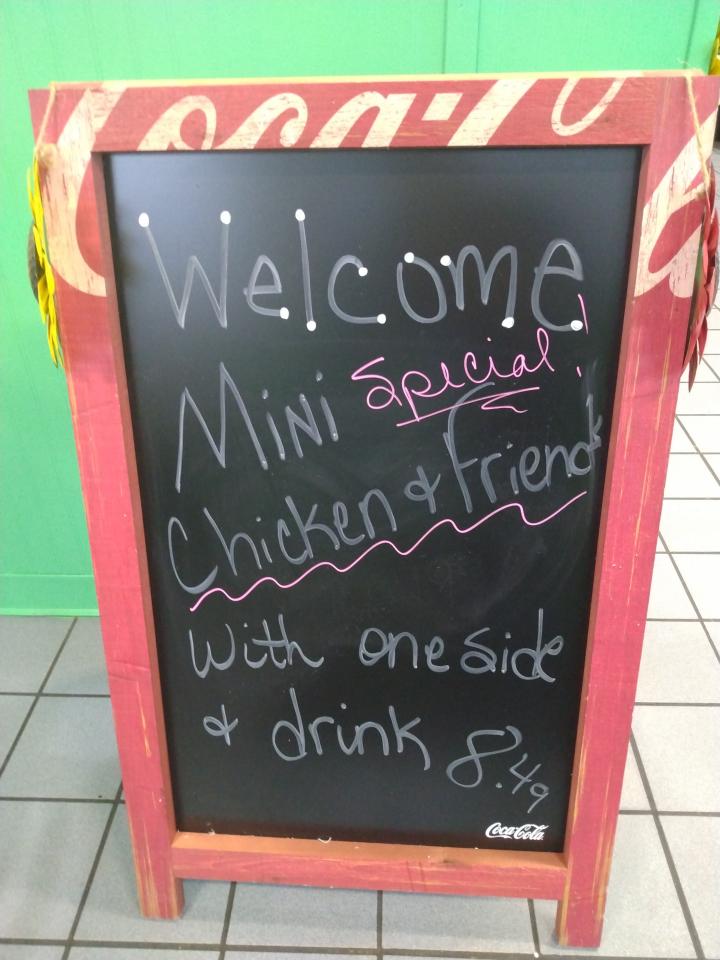 Coca-Co
Welcome
Mini Special!
Chicken & Friends
With one side
& drink 8.49
Coca-Cola